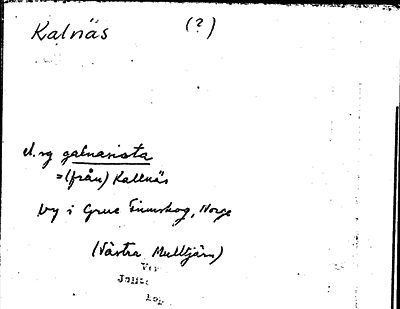 Kalnäs (?)
el. sg galnasista
=(från) Kallnäs
by i Grue Finnskog, Norge
(Västra Multtjärn)